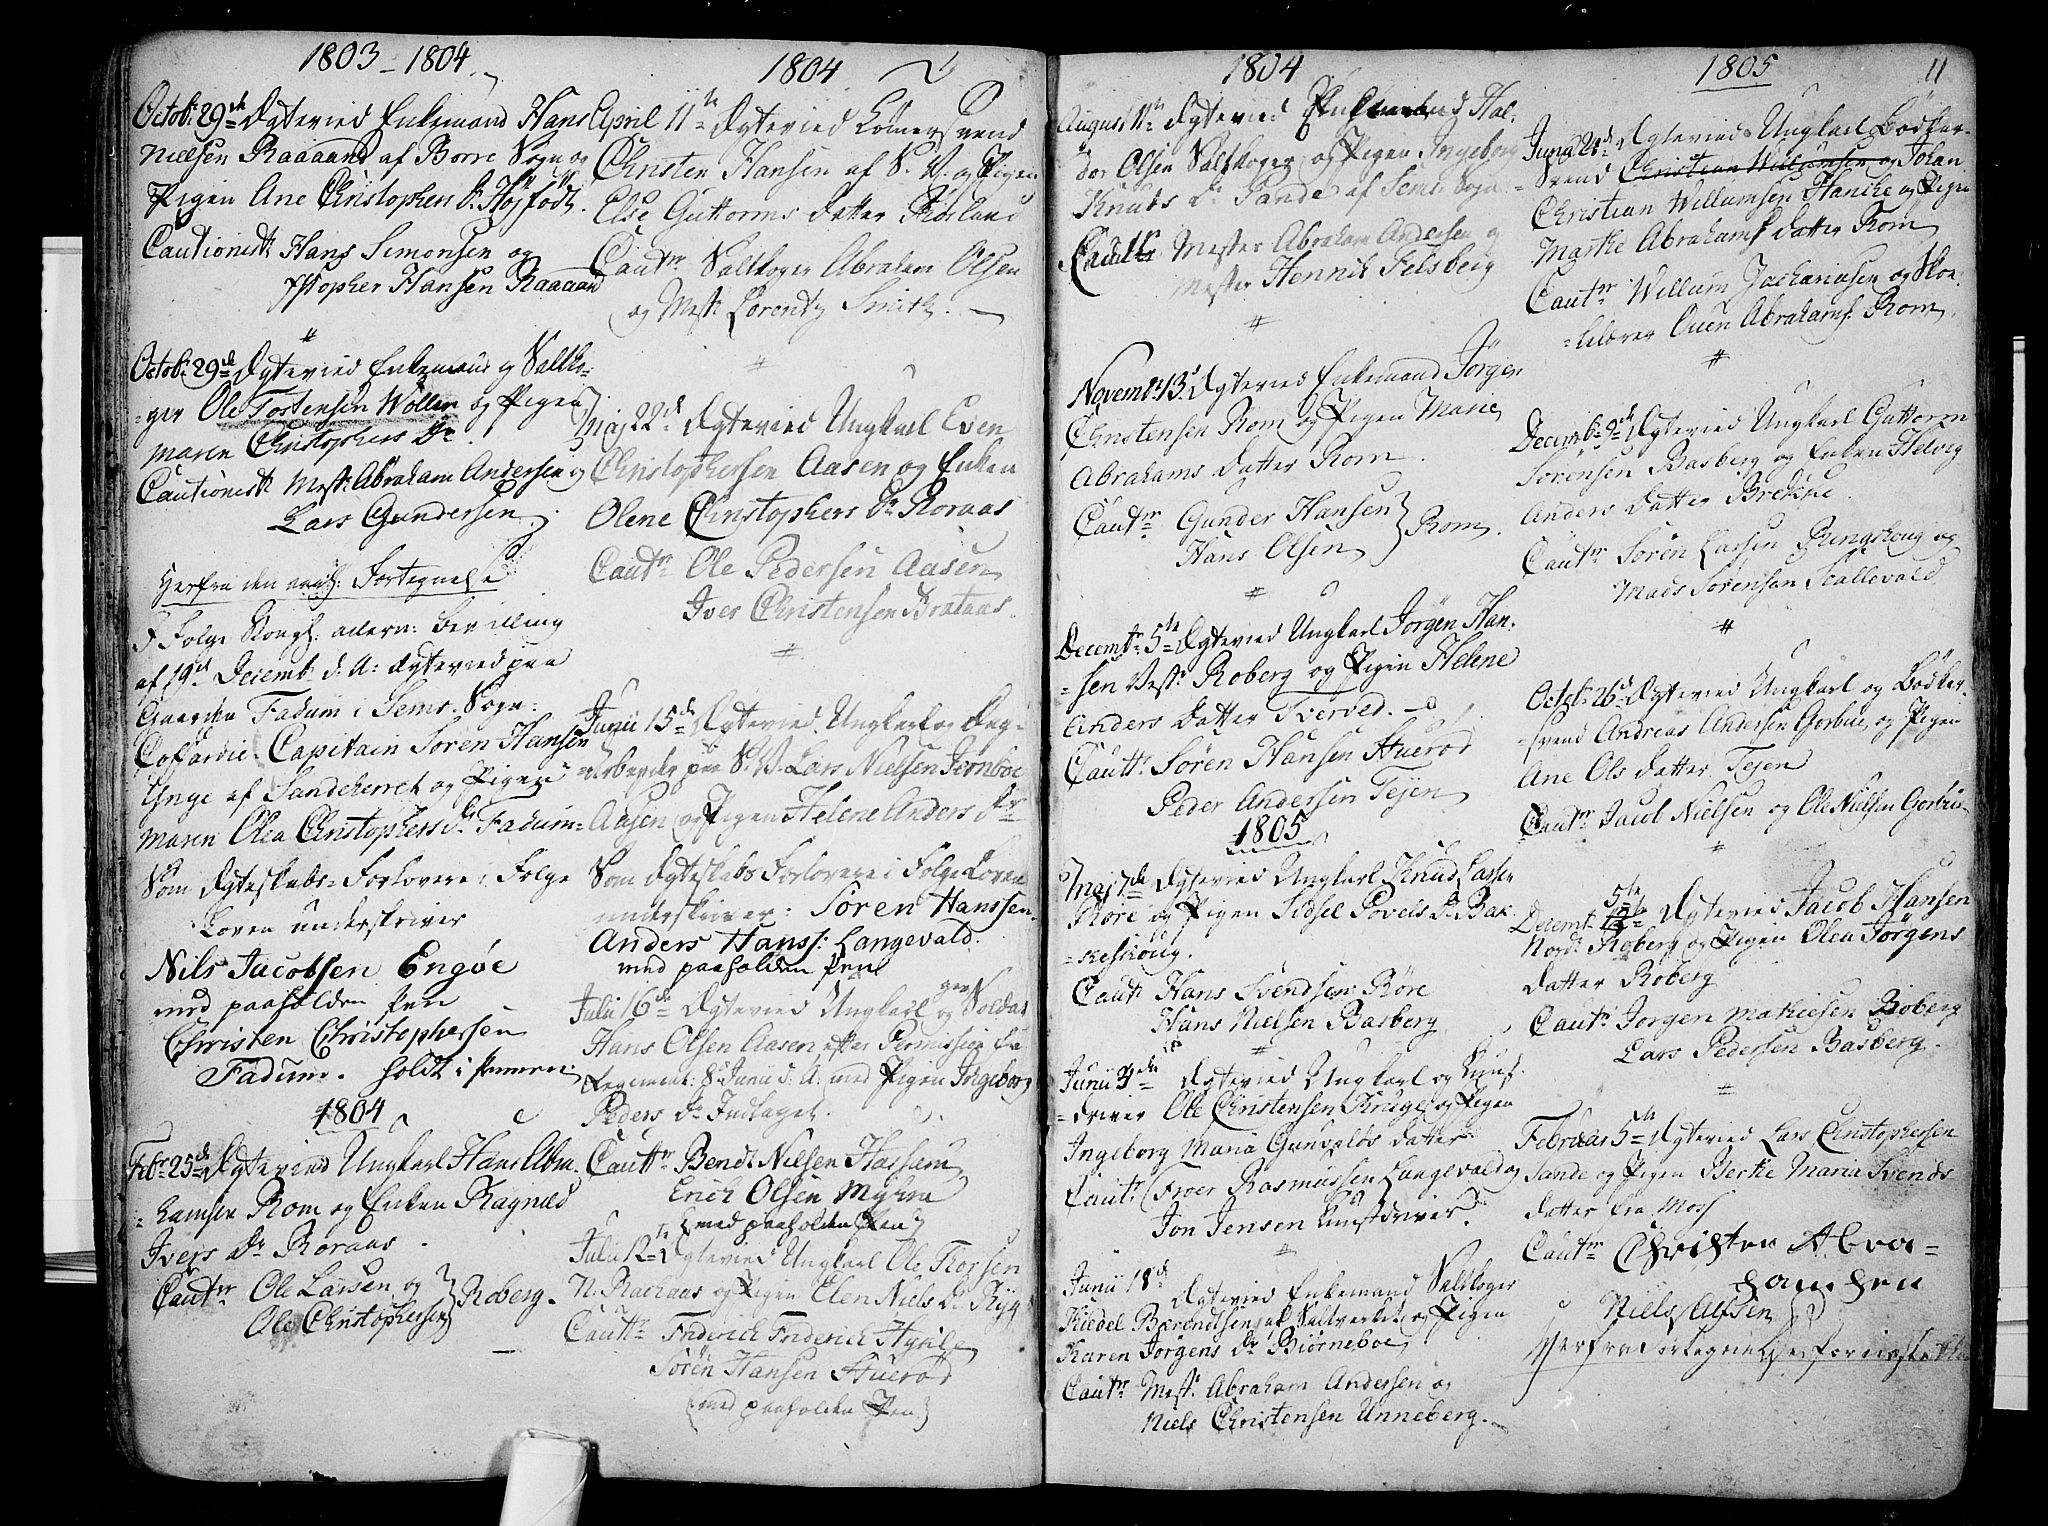 1803 - 1804
Octob: 29de Ægteviet Enkemand Hans
Nielsen Raaaand af Borre Sogn og
Pigen Ane Christophers Dr Høyfødt.
Cautionist: Hans Simonsen og
Xstopher Hansen Raaaand
#
Octob: 29de Ægteviet Enkemand og Saltko-
-ger Ole Tostensen Wøllen og Pigen
Maren Christophers Dr.
Cautionist: Mest: Abraham Andersen og
Lars Gundersen
Herfra den Fortegnelse
I Følge Kongl: allern: Bevilling
af 19de Decemb. d. A: Ægteviet paa
Gaarden Fadum i Sems Sogn:
Coffardie-Capitain Søren Hansen
Unge af Sandeherret og Pigen
Maren Olea Christophers Dr Fadum
Som Ægteskabs-Forlovere i Følge
Loven underskriver
Nils Jacobsen Engøe
med paaholden Pen
Christen Christophersen
Fadum. holdt i Pennen
1804
Febr: 25de Ægteviet Ungkarl Hans Abra-
-hamsen Rom og Enken Ragnild
Ivers Dr Roraas
Cautr Ole Larsen og
Ole Christophersen } Roberg.
1804
April 11te Ægteviet
Christen Hansen af S. V. og Pigen
Else Guttorms Datter
Cautr Saltkoger Abraham Olsen
og Mest: Lorentz Smith.
#
Maj 22de Ægteviet Ungkarl Even
Christophersen Aasen og Enken
Olene Christophers Dr Roraas
Cautr Ole Pedersen Aasen
Iver Christensen Brataas.
#
Junii 15de Ægteviet Ungkarl og Dag-
-arbeyder paa S. V. Lars Nielsen Jernboe
Aasen og Pigen Helene Anders Dr
Som Ægteskabs Forlovere i Følge Loven
underskriver: Søren Hanssen
Anders Hanss: Langevald.
med paaholden Pen
Julii 16de Ægteviet Ungkarl og Soldat
Hans Olsen Aasen, efter Permission fra
Regiment: 8de Junii d: A: med Pigen Ingeborg
Peders Dr Indlaget.
Cautr Bendt Nielsen Hassum
Erich Olsen Myhra
(med paaholden Pen)
Julii 12te Ægteviet Ungkarl Ole Thorsen
N. Rachaas og Pigen Elen Niels Dr Ryg
Cautr Friderich Friderich
Søren Hansen Huerød
(med paaholden Pen)
1804
August 11te Ægteviet Enkemand Hal-
-dor Olsen Saltkoger og Pigen Ingeborg
Knuds Dr Sande af Sems Sogn
Cautr Mester Abraham Andersen og
Mester Henrik Felsberg
#
Novemb: 13de Ægteviet Enkemand Jörgen
Christensen Rom og Pigen Marie
Abrahams Datter Rom.
Cautr Gunder Hansen
Hans Olsen } Rom.
#
Decembr 5te Ægteviet Ungkarl Jörgen Han-
-sen Vest: Roberg og Pigen Helene
Anders Datter Tverved.
Cautr. Søren Hansen Huerød
Peder Andersen Tejen
1805
Maj 7de Ægteviet Ungkarl Knud Larsen
Røre og Pigen Sidsel Povels Dr Bak-
-keskoug.
Cautr Hans Svendsen Røre
Hans Nielsen Basberg
#
Junii 4de Ægteviet Ungkarl og Kunst-
-driver Ole Christensen Kruge og Pigen
Ingeborg Maria Gunvalds Datter
Cautr Froer Rasmussen Langevald og
Jon Jensen Kunstdriver.
#
Junii 18de Ægteviet Enkemand Saltkoger
Kiedel Berendtsen af Saltverket og Pigen
Karen Jørgens Dr Biørneboe
Cautr Mest: Abraham Andersen og
Niels Christensen Unneberg.
1805 11
Junii 21de Ægteviet Ungkarl Bødker-
-Svend Christian Willumsen og Johan
Christian Willumsen Hancke og Pigen
Marthe Abrahams Datter Rom
Cautr Willum Zachariasen og Skoe-
-holdver Ouen Abrahams. Rom.
#
Decemb: 9de Ægteviet Ungkarl Guttorm
Sørensen Basberg og Enken Helvig
Anders Datter Brekke.
Cautr Søren Larsen Ringskoug og
Mads Sørensen Scallevald.
#
Octob: 26de Ægteviet Ungkarl og Bødker-
-svend Andreas Andersen Gorbue, og Pigen
Ane Ols Datter Tejen
Cautr Jacob Nielsen og Ole Nielsen Gorbue
#
5te
Decemt. Ægteviet Jacob Hansen
Nord: Roberg og Pigen Olea Jørgens
Datter Roberg
Cautr Jørgen Mathiesen Roberg
Lars Pedersen Basberg.
#
Februar 5te Ægteviet Lars Christophersen
Sande og Pigen Berthe Maria Svends
Datter fra Moss
Cautr Christen Abra-
hamsen
Niels Alfsen
Herfra Fortegnelse